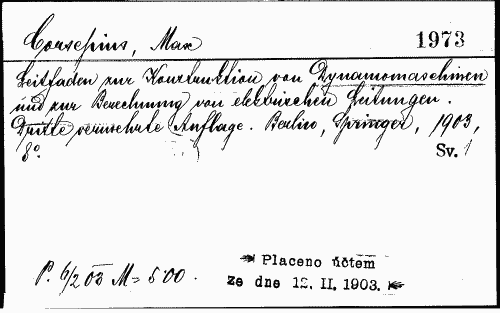 Corsepius, Max
1973
Leitfaden zur Konstruktion von Dynamomaschinen
und zur Berechnung von elektrischen Leitungen.
Dritte vermehrte Auflage. Berlin, Springer, 1903,
8°.
Sv. 1
P. 6/2 03 M = 5·00.
Placeno účtem
ze dne 12. II. 1903.